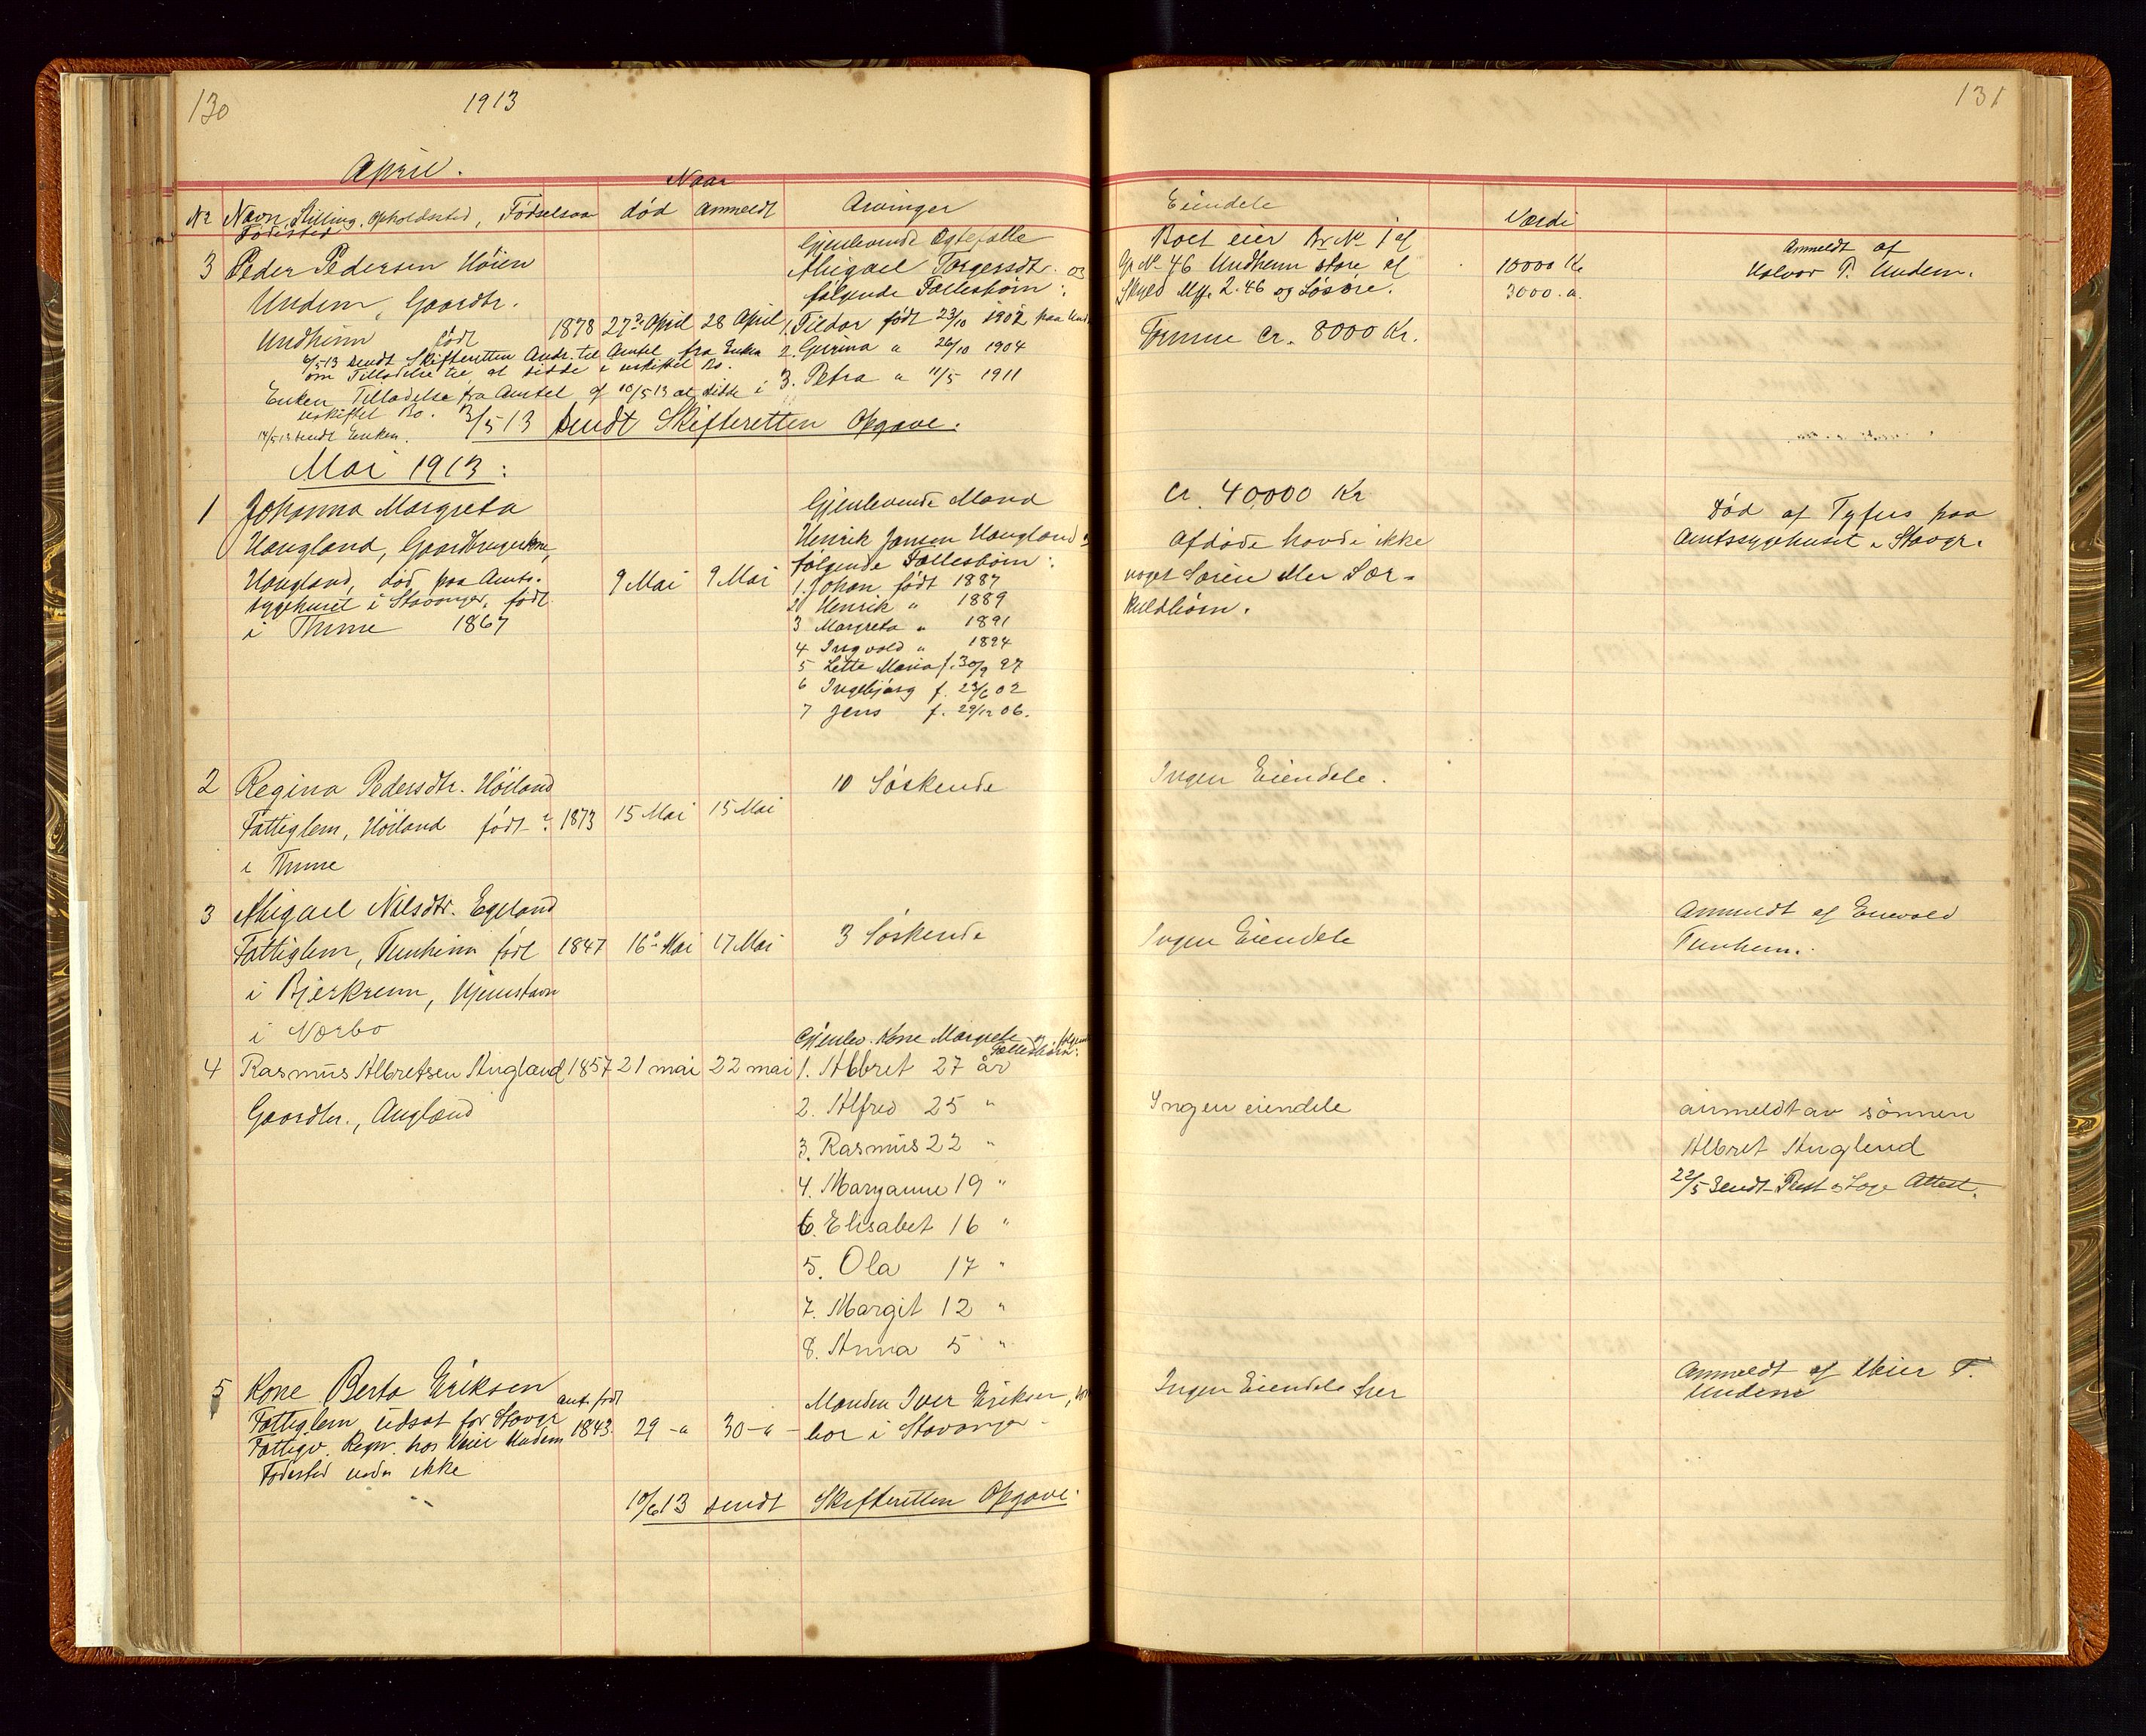 130
1913
April.
Naar
Nr Navn, Stilling, Opholdssted, Fødselsaar død anmeldt Arvinger
Fødested
Gjenlevende Egtefælle
3 Peder Pedersen Høien Abigael Torgersdtr. og
Undem, Gaardbr. følgende Fællesbørn:
Undheim født 1878 27de April 28 April 1. Tildar født 23/10 1902 paa Und
6/5 13 sendt Skifteretten Andr. til Amtet fra Enken 2. Gurina " 26/10 1904
om Tilladelse til at sidde i uskiftet Bo.
Enken Tilladelse fra Amtet af 10/5 13 at sidde i 3. Petra " 11/5 1911
uskiftet Bo.
14/5 13 sendt Enken. 3/5 13 sendt Skifteretten Opgave.
Mai 1913:
1 Johanna Margreta Gjenlevende Mand
Haugland, Gaardbrugerkone, Henrik Jansen Haugland
Haugland, død paa Amts- 9 Mai 9 Mai følgende Fællesbørn:
sygehuset i Stavanger, født 1. Johan født 1887
i Thime 1867 2 Henrik " 1889
3 Margreta " 1891
4 Ingvald " 1894
5 Lette Maria f. 30/9 97
6 Ingebjørg f. 23/6 02
7 Jens f. 29/12 06.
2 Regina Pedersdtr. Høiland 10 Søskende
Fattiglem, Høiland født 1873 15 Mai 15 Mai
i Thime
3 Abigael Nilsdtr. Egeland
Fattiglem, Tunheim født 1847 16de Mai 17 Mai 3 Søskende
i Bjerkreim, Hjemstavn
i Nærbo
Gjenlev. Kone Margrete og følgende
Fællesbørn:
4 Rasmus Albretsen Augland 1857 21 mai 22 mai 1. Albret 27 år
Gaardbr., Augland 2. Alfred 25 "
3. Rasmus 22 "
4. Maryanne 19 "
6. Elisabet 16 "
5. Ola 17 "
7. Margit 12 "
8. Anna 5 "
5 Kone Berta Eriksen ant. født Manden Iver Eriksen,
Fattiglem udsat for Stavgr 1843 29 -" 30 -" bor i Stavanger
Fattigv. Regn. hos Meier Undem
Fødested vides ikke
10/6 13 sendt Skifteretten Opgave.
131
Eiendele Værdi
Boet eier Br. No 1 af Anmeldt af
Gr No 46 Undheim store af 10000 Kr Halvor P. Undem.
Skyld Mk. 2.46 og Løsøre. 3000 -".
Formue ca. 8000 Kr.
ca. 40,000 Kr Død af Tyfus paa
Afdøde havde ikke Amtssygehuset i Stavgr.
noget Særeie eller Sær-
kuldbørn.
Ingen Eiendele.
Ingen Eiendele Anmeldt af Enevald
Tunheim.
Ingen eiendele anmeldt av sønnen
Albret Auglend
22/5 sendt Præst og Læge Attest.
Ingen Eiendele her Anmeldt af Meier T.
Undem